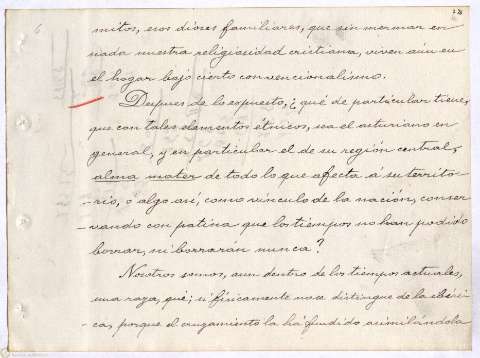 mitos, esos dioses familiares, que sin mermar en
nada nuestra religiosidad cristiana, viven aún en
el hogar bajo cierto convencionalismo.
Despues de lo espuesto, ¿qué de particular tiene,
que con tales elementos étnicos, sea el asturiano en
general, y en particular el de su región central,
alma mater de todo lo que afecta á su territo-
-rio, ó algo así, como vínculo de la nación, conser-
-vando con patina que los tiempos no han podido
borrar, ni borrarán nunca?
Nosotros somos, aun dentro de los tiempos actuales,
una raza, que; si físicamente no se distingue de la ibéri-
-ca, porque el cruzamiento la há fundido asimilándola